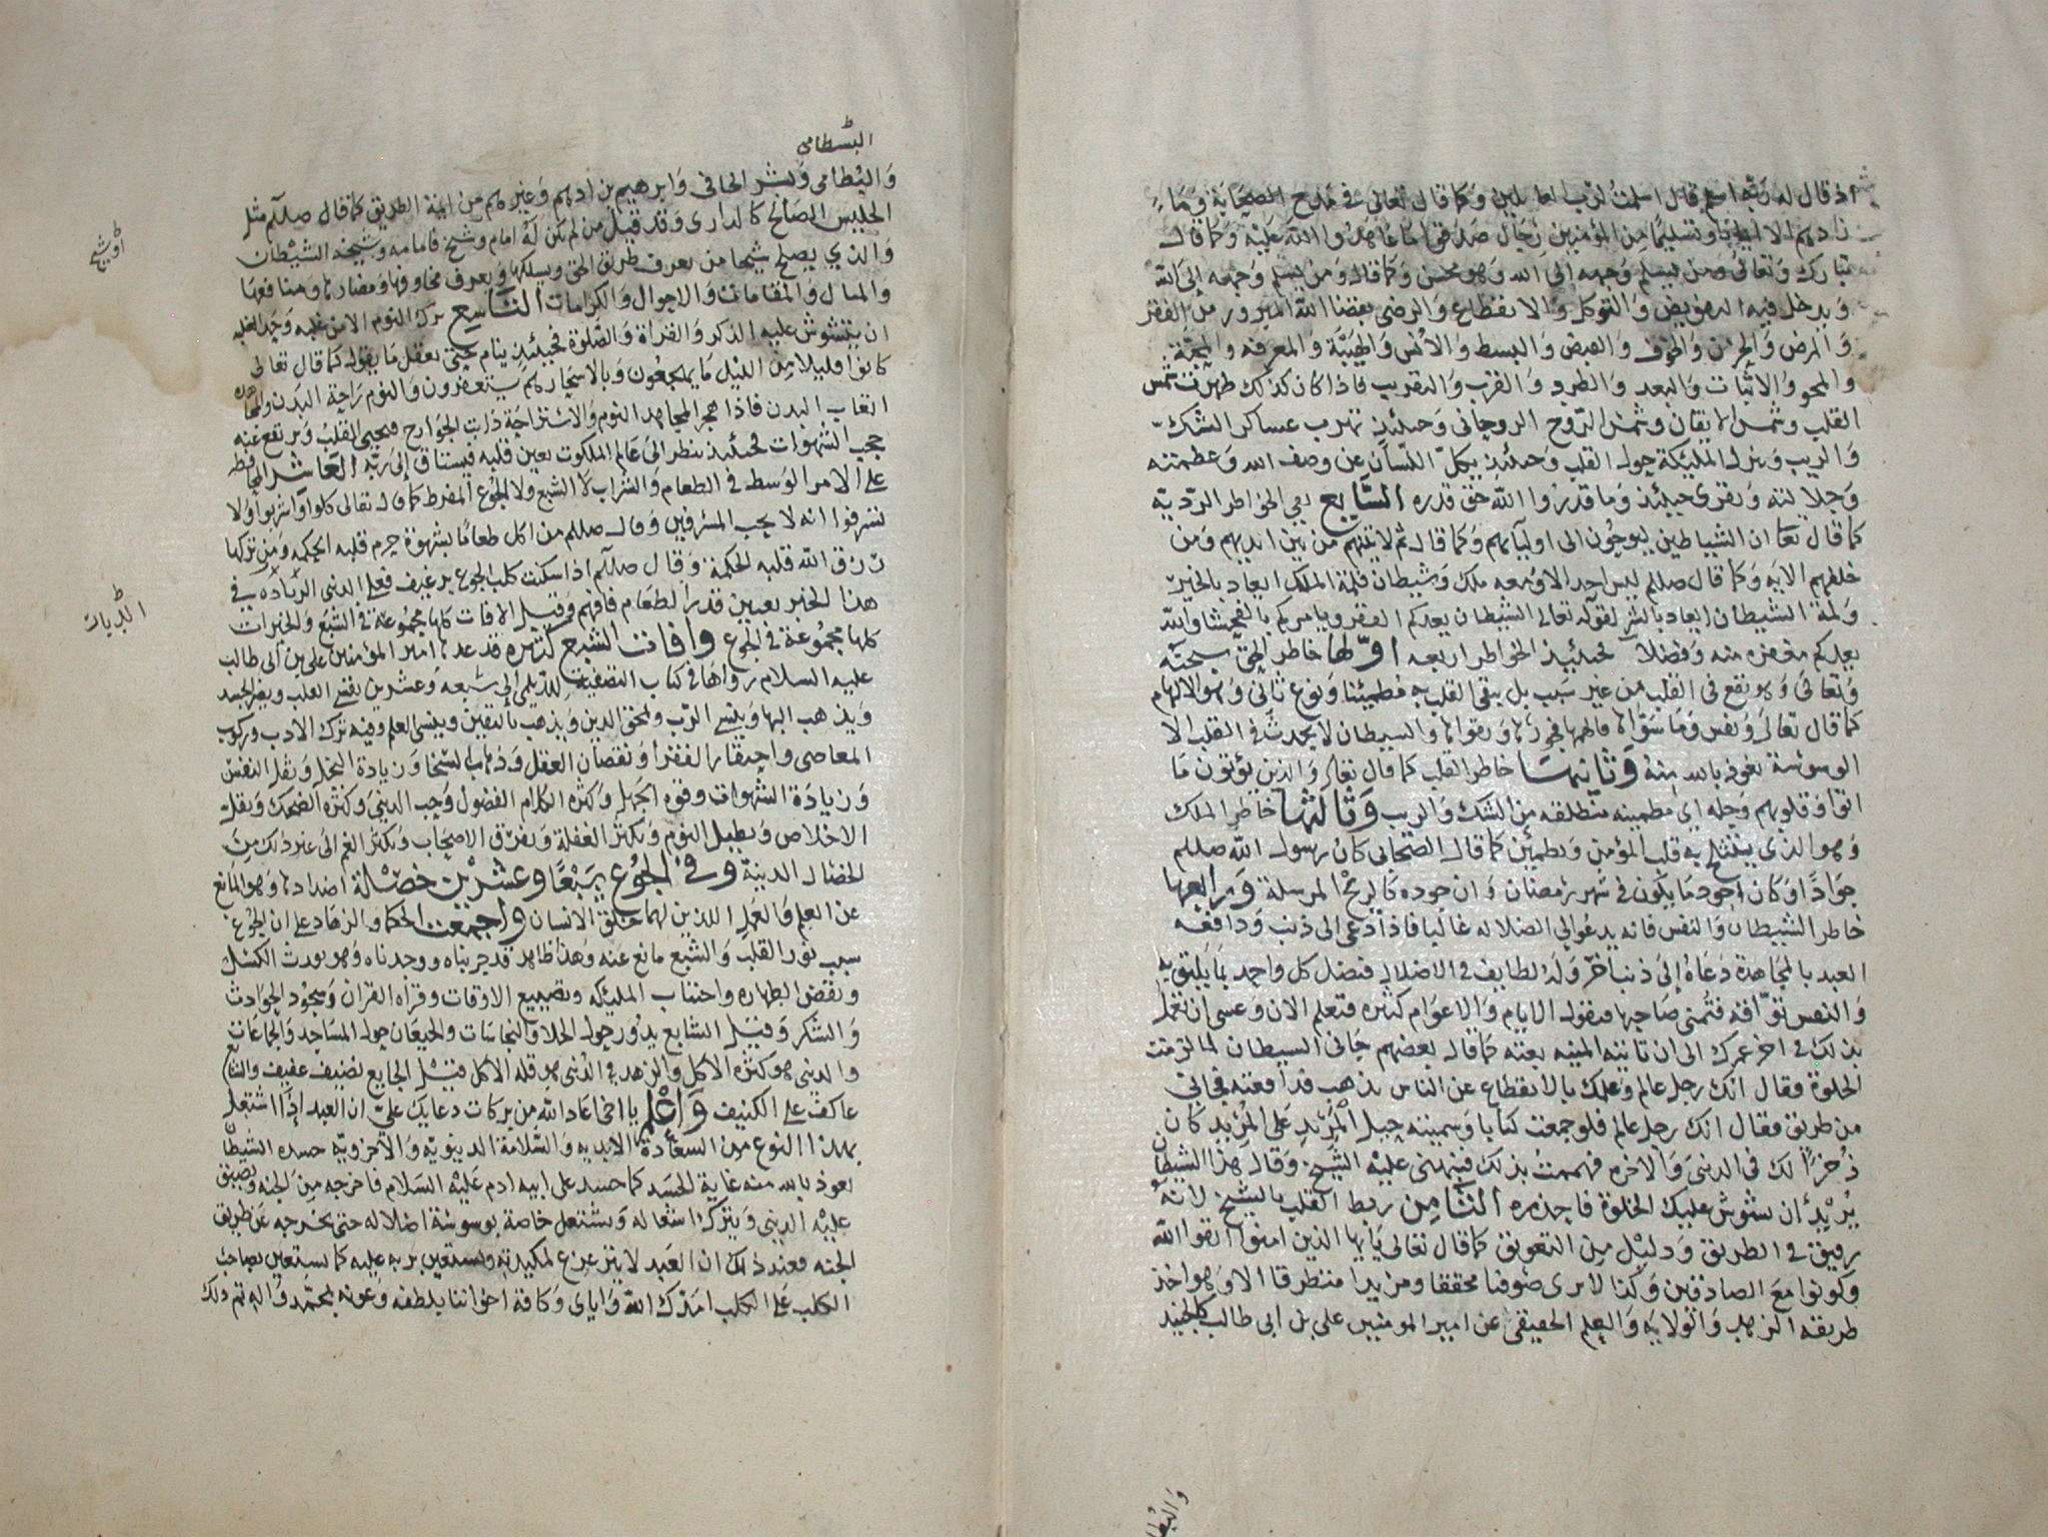 اذ قال له ربه اسلم قال اسلمت لرب العالمين وكما قال تعالى في مدح الصحابة وما
زادهم الا ايمانا وتسليما من المؤمنين رجال صدقوا ما عاهدوا الله عليه وكما قال
تبارك وتعالى ومن يسلم وجهه الى الله وهو محسن وكما قال ومن يسلم وجهه الى الله
ويدخل فيه التفويض والتوكل والانقطاع والرضى بقضا الله المبرور من الفقر
والمرض والحزن والخوف والقبض والبسط والانس والهيبة والمعرفة والمحبة
والمحو والاثبات والبعد والطرد والقرب والتقريب فاذا كان كذلك ظهرت شمس
القلب وشمس الايقان وشمس الروح الروحاني وحينئذ تهرب عساكر الشك
والريب وينزل المليكة حول القلب وحينئذ يكل اللسان عن وصف الله وعظمته
وجلالته ويقرى حينئذ وما قدروا الله حق قدره السابع نفي الخواطر الردية
كما قال تعا ان الشياطين ليوحون الى اوليآيهم وكما قال ثم لاتينهم من بين ايديهم ومن
خلفهم الايه وكما قال صللم ليس احد الا ومعه ملك وشيطان فلمة الملك ايعاد بالخير
ولمة الشيطان ايعاد بالشر لقوله تعالى الشيطان يعدكم الفقر ويامركم بالفحشا والله
يعدكم مغفرة منه وفضلا فحينئذ الخواطر اربعه اولها خاطر الحق سبحنه
وتعالى وهو يقع في القلب من غير سبب بل يبقى القلب به مطمينا ونوع ثاني وهو الالهام
كما قال تعالى ونفس وما سواها فالهمها فجورها وتقواها والشيطان لا يحدث في القلب الا
الوسوسة نعوذ بالله منه وثانيها خاطر القلب كما قال تعالى والذين يؤتون ما
اتوا وقلوبهم وجله اي مطمينه منطلقه من الشك والريب وثالثها خاطر الملك
وهو الذي ينثلج به قلب المؤمن ويطمئن كما قال الصحابي كان رسول الله صللم
جوادا وكان اجود ما يكون في شهر رمضان وان جوده كالريح المرسلة ورابعها
خاطر الشيطان والنفس فانه يدعو الى الضلاله غالبا فاذا دعى الى ذنب ودافعه
العبد بالمجاهدة دعاه الى ذنب اخر وله لطايف في الاضلال فيضل كل واحد بما يليق به
والنفس تواقه فتمنى صاحبها فيقول الايام والاعوام كثيره فتعلم الان وعسى ان تعمل
بذلك في اخر عمرك الى ان تاتيه المنيه بغته كما قال بعضهم جاني الشيطان لما لزمت
الخلوة فقال انك رجل عالم وعلمك بالانقطاع عن الناس يذهب فدافعته فجاني
من طريق فقال انك رجل عالم فلو جمعت كتابا وسميته حيل المريد على المريد كان
ذخرا لك في الدنيى والاخره فهممت بذلك فنبهني عليه الشيخ وقال هذا الشيطان
يريد ان يشوش عليك الخلوة فاحذره الثامن ربط القلب بالشيخ لانه
رفيق في الطريق ودليل من التعويق كما قال تعالى يا ايها الذين امنوا اتقوا الله
وكونوا مع الصادقين وكذا لا يرى صوفيا محققا ومريدا متطرقا الا وهو اخذ
طريقه الزهد والولايه والعلم الحقيقي عن امير المومنين علي بن ابي طالب كالجنيد
البسطامي
والبطامي وبشر الحافي وابرهيم بن ادهم وغيرهم من ايمة الطريق كما قال صللم مثل
الجليس الصالح كالداري وقد قيل من لم يكن له امام وشيخ فامامه وشيخه الشيطان
والذي يصلح شيخا من يعرف طريق الحق ويسلكها ويعرف مخاوفها ومضارها ومنافعها
والمنازل والمقامات والاحوال والكرامات التاسع ترك النوم الا من غلبه وحد الغلبه
ان يتشوش عليه الذكر والقراة والصلوة فحينئذ ينام حتى يعقل ما يقول كما قال تعالى
كانوا قليلا من الليل ما يهجعون وبالاسحار هم يستغفرون والنوم راحة البدن والمجاهده
اتعاب البدن فاذا هجر المجاهد النوم والاستراحة ذابت الجوارح فيحيى القلب ويرتفع عنه
حجب الشهوات فحينئذ ينظر الى عالم الملكوت بعين قلبه فيشتاق الى ربه العاشر المحافظه
على الامر الوسط في الطعام والشراب لا الشبع ولا الجوع المفرط كما قال تعالى كلوا واشربوا ولا
تسرفوا انه لا يحب المسرفين وقال صللم من اكل طعاما بشهوة حرم قلبه الحكمه ومن تركها
رزق الله قلبه الحكمة وقال صللم اذا سكنت كلب الجوع برغيف فعلى الدنى الزياده في
هذا الخبر تعيين قدر الطعام فافهم وقيل الافات كلها مجموعة في الشبع والخيرات
كلها مجموعة في الجوع وافات الشبع كثيره قد عدها امير المؤمنين علي بن ابي طالب
عليه السلام رواها في كتاب التصفية للديلمي الى سبعه وعشرين يقسي القلب ويضر الجسد
ويذهب البها وينسي الرب ويمحق الدين ويذهب باليقين وينسي العلم وفيه ترك الادب وركوب
المعاصي واحتقار الفقرا ونقصان العقل وذهاب السخا وزيادة البخل وثقل النفس
وزيادة الشهوات وقوه الجهل وكثره الكلام الفضول وحب الدنيى وكثره الضحك ويقل
الاخلاص ويطيل النوم ويكثر الغفلة ويفرق الاصحاب ويكثر الغم الى غير ذلك من
الخصال الدنية وفي الجوع سبعا وعشرين خصلة اضدادها وهو المانع
عن العلم والعمل اللذين لهما خلق الانسان واجمعت الحكما والزهاد على ان الجوع
سبب نور القلب والشبع مانع عنه وهذا ظاهر قد جربناه ووجدناه وهو يورث الكسل
ونقض الطهاره واجتناب المليكه وتضييع الاوقات وقراه القران وسجود الحوادث
والشكر وقيل الشابع يدور حول الخلا والنجاسات والجيعان حول المساجد والجماعات
والدنيى هو كثره الاكل والزهد في الدنيى هو قله الاكل فيسر الجايع نضيف عفيف والشابع
عاكف على الكنيف واعلم يا اخي اعاد الله من بركات دعايك علي ان العبد اذا اشتغل
بهذا النوع من السعادة الابديه والسلامة الدينويه والاخرويه حسده الشيطان
نعوذ بالله منه غاية الحسد كما حسد على ابيه ادم عليه السلام فاخرجه من الجنه ويضيق
عليه الدنيى ويترك اشغاله ويشتغل خاصة بوسوسة اضلاله حتى يخرجه عن طريق
الجنه فعند ذلك ان العبد لا ينزعزع لمكيدته ويستعين بربه عليه كما يستعين بصاحب
الكلب على الكلب امدك الله واياى وكافة اخواننا بلطفه وعونه بمحمد واله تم ذلك
او شيخ